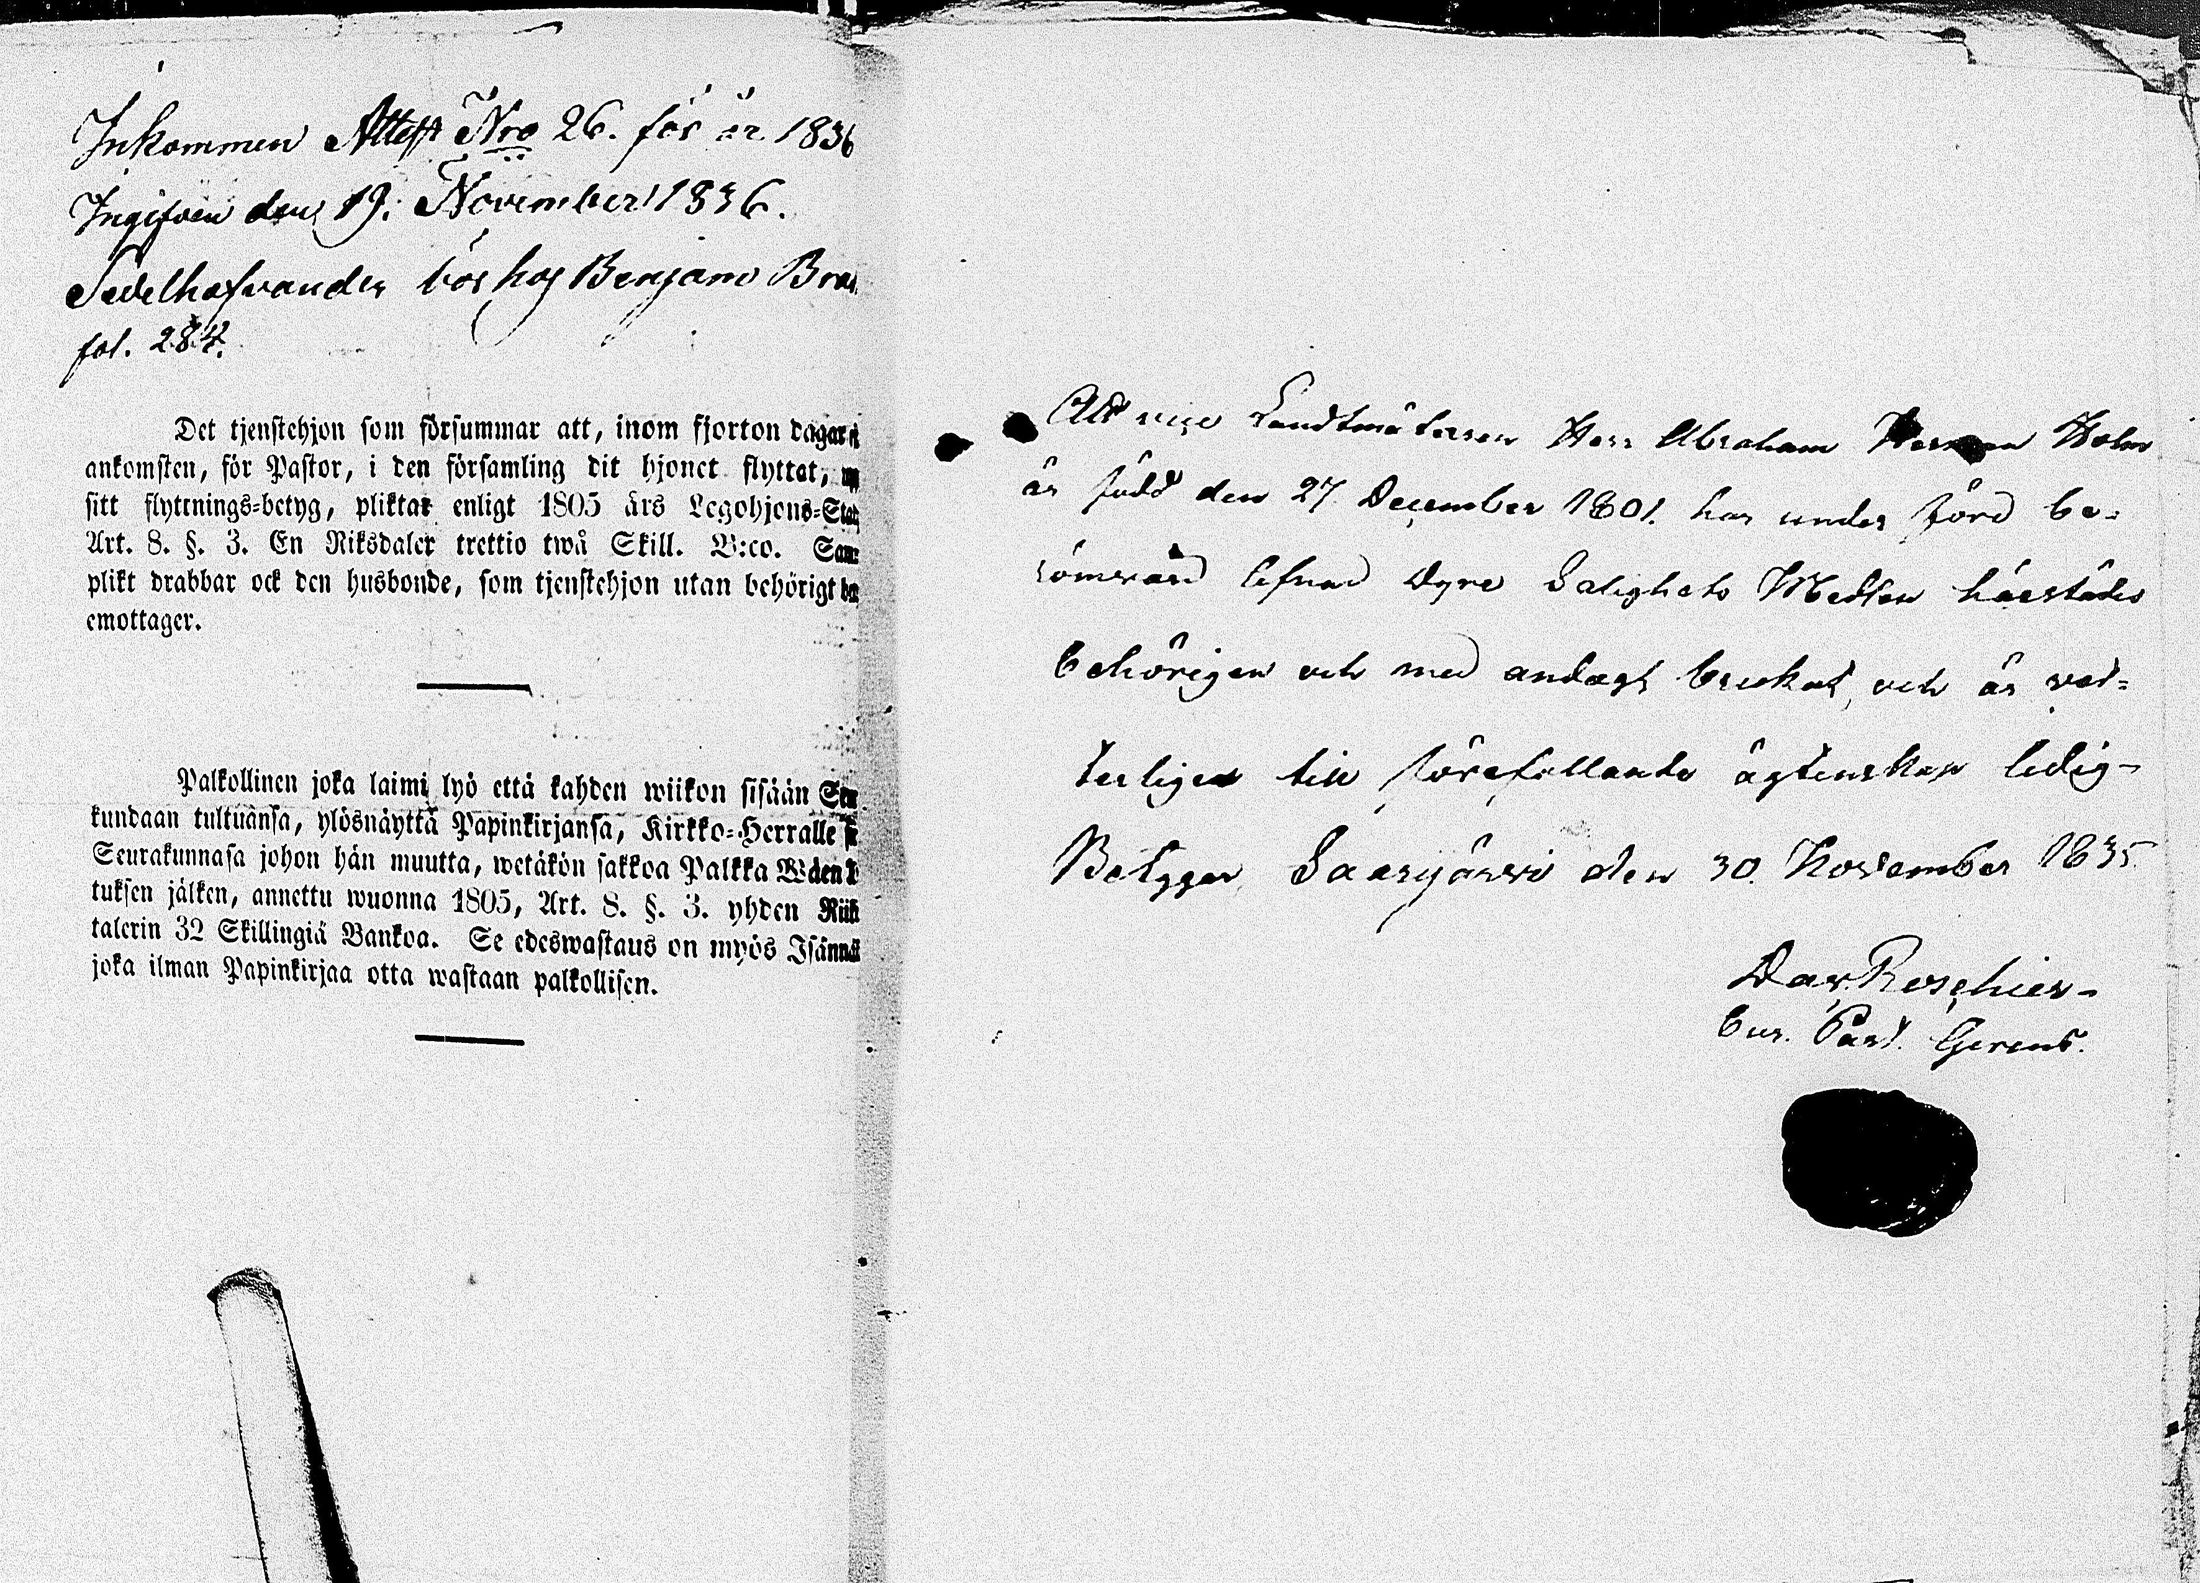 Inkommen Attest Nro 26. för år 1836
Ingifven den 19. November 1836.
Sedelhafvanden bor hos Benjam Bra
fol. 284.
Det tjenstehjon som försummar att, inom fjorton dagar
ankomsten, för Pastor, i den församling dit hjonet flyttat,
sitt flyttnings=betyg, pliktar enligt 1805 års Legohjons=Stad
Art. 8. §. 3. En Riksdaler trettio twå Skill. B:co. Sam
plikt drabbar ock den husbonde, som tjenstehjon utan behörigt be
emottager.
Palkollinen joka laimi lyö että kahden wiikon sisään Seu
kundaan tultuansa, ylösnäyttä Papinkirjansa, Kirkko=Herralle
Seurakunnasa johon hän muutta, wetäkön sakkoa Palkka Wäen
tuksen jälken, annettu wuonna 1805, Art. 8. §. 3. yhden Riik
talerin 32 Skillingiä Bankoa. Se edeswastaus on myös Isännä
joka ilman Papinkirjaa otta wastaan palkollisen.
Att vice Landtmätaren Herr Abraham Herman Holm
är född den 27 December 1801. har under förd be=
römvärd lefnad dyre Salighets Medlen härstädes
behörigen och med andagt brukat, och är vet=
terligen till förefallande ägtenskap ledig-
Betygar Saarijärvi den 30. November 1835
Dav. Roschier-
bur. Past. Gerens.